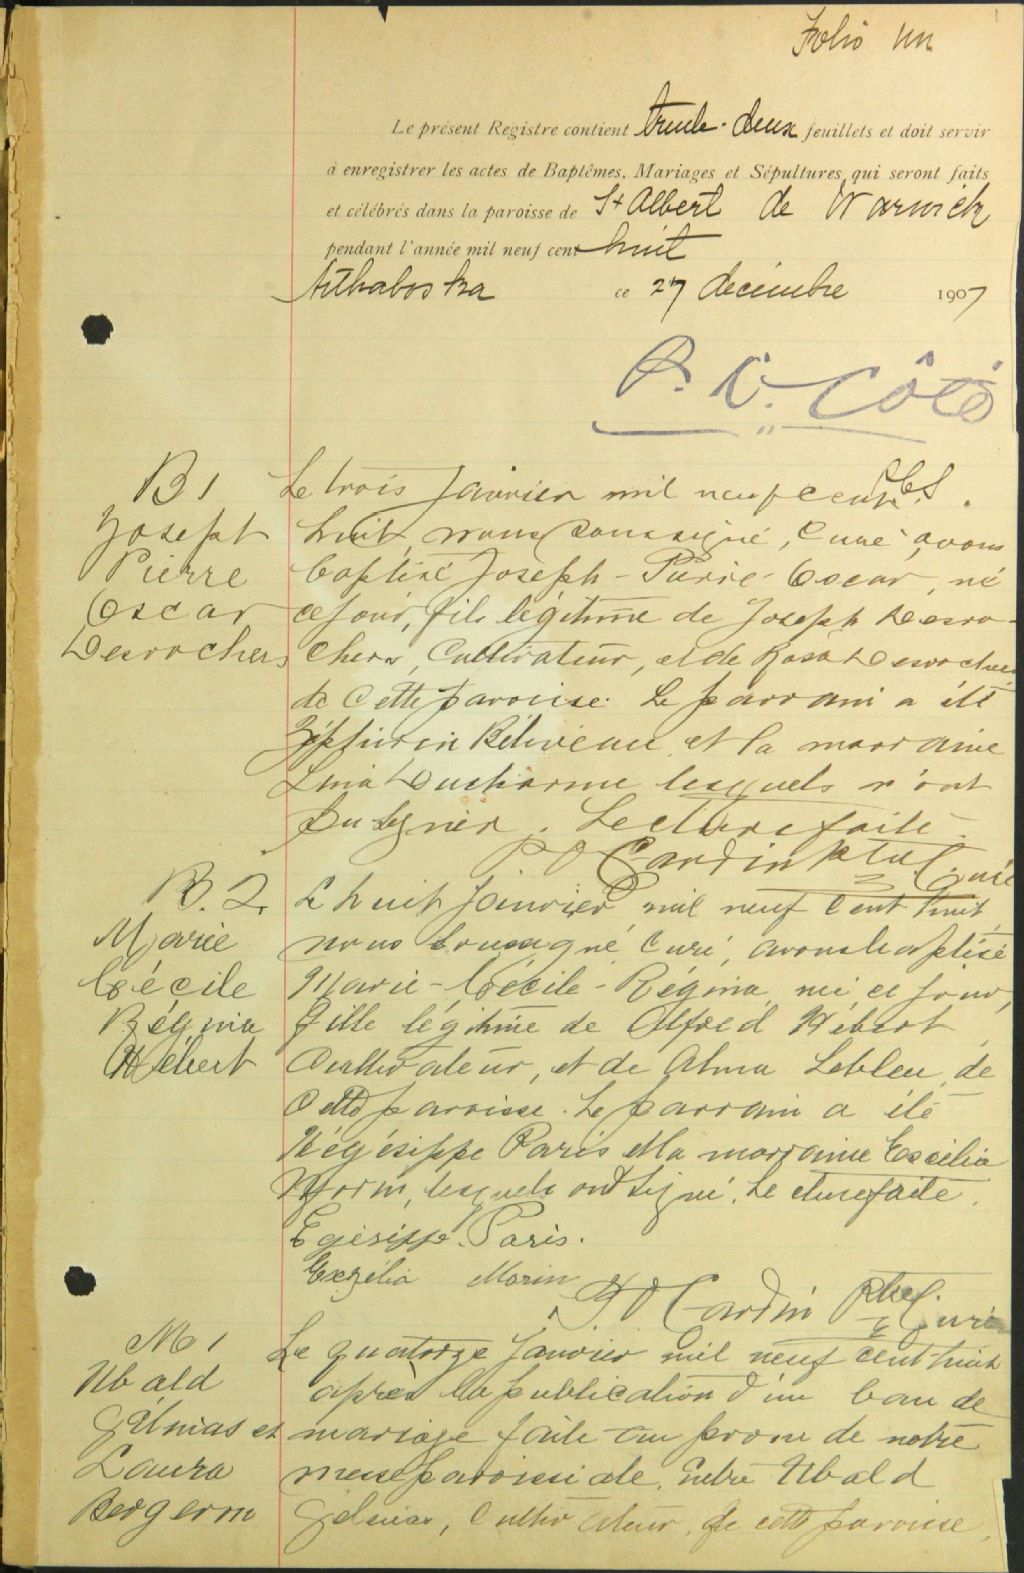 Folio un
Le présent Registre contient trente-deux feuillets et doit servir
à enregistrer les actes de Baptêmes, Mariages et Sépultures qui seront faits
et célébrés dans la paroisse de St Albert de Warwick
pendant l'année mil neuf cent huit
Arthabaska ce 27 décembre 1907
P. C. Côté
B 1 Le trois Janvier mil neuf cent
Joseph huit, nous soussigné, Curé, avons
Pierre baptisé Joseph-Pierre-Oscar, né
Oscar ce jour, fils légitime de Joseph Desro-
Desrochers chers, Cultivateur, et de Rosa Desrochers
de cette paroisse. Le parrain a été
Zéphirin Béliveau et la marraine
Ducharme lesquels n'ont
pu signer. Lecture faite.
P O Cardin Ptre Curé
B. 2. Le huit Janvier mil neuf cent huit,
Marie nous soussigné, Curé, avons baptisé
Cécile Marie-Cécile-Régina, née ce jour,
Régina fille légitime de Alfred Hébert,
Hébert Cultivateur, et de Alma Lebleu, de
cette paroisse. Le parrain a été
Hégésippe Paris et la marraine Exzélia
Morin, lesquels ont signé. Lecture faite.
Egésippe Paris.
Exzélia Morin
P. O Cardin Ptre. Curé
M 1 Le quatorze Janvier mil neuf cent huit
Ubald après la publication d'un ban de
Gélinas et mariage faite au prone de notre
Laura messe paroissiale, entre Ubald
Bergeron Gélinas, Cultivateur, de cette paroisse,